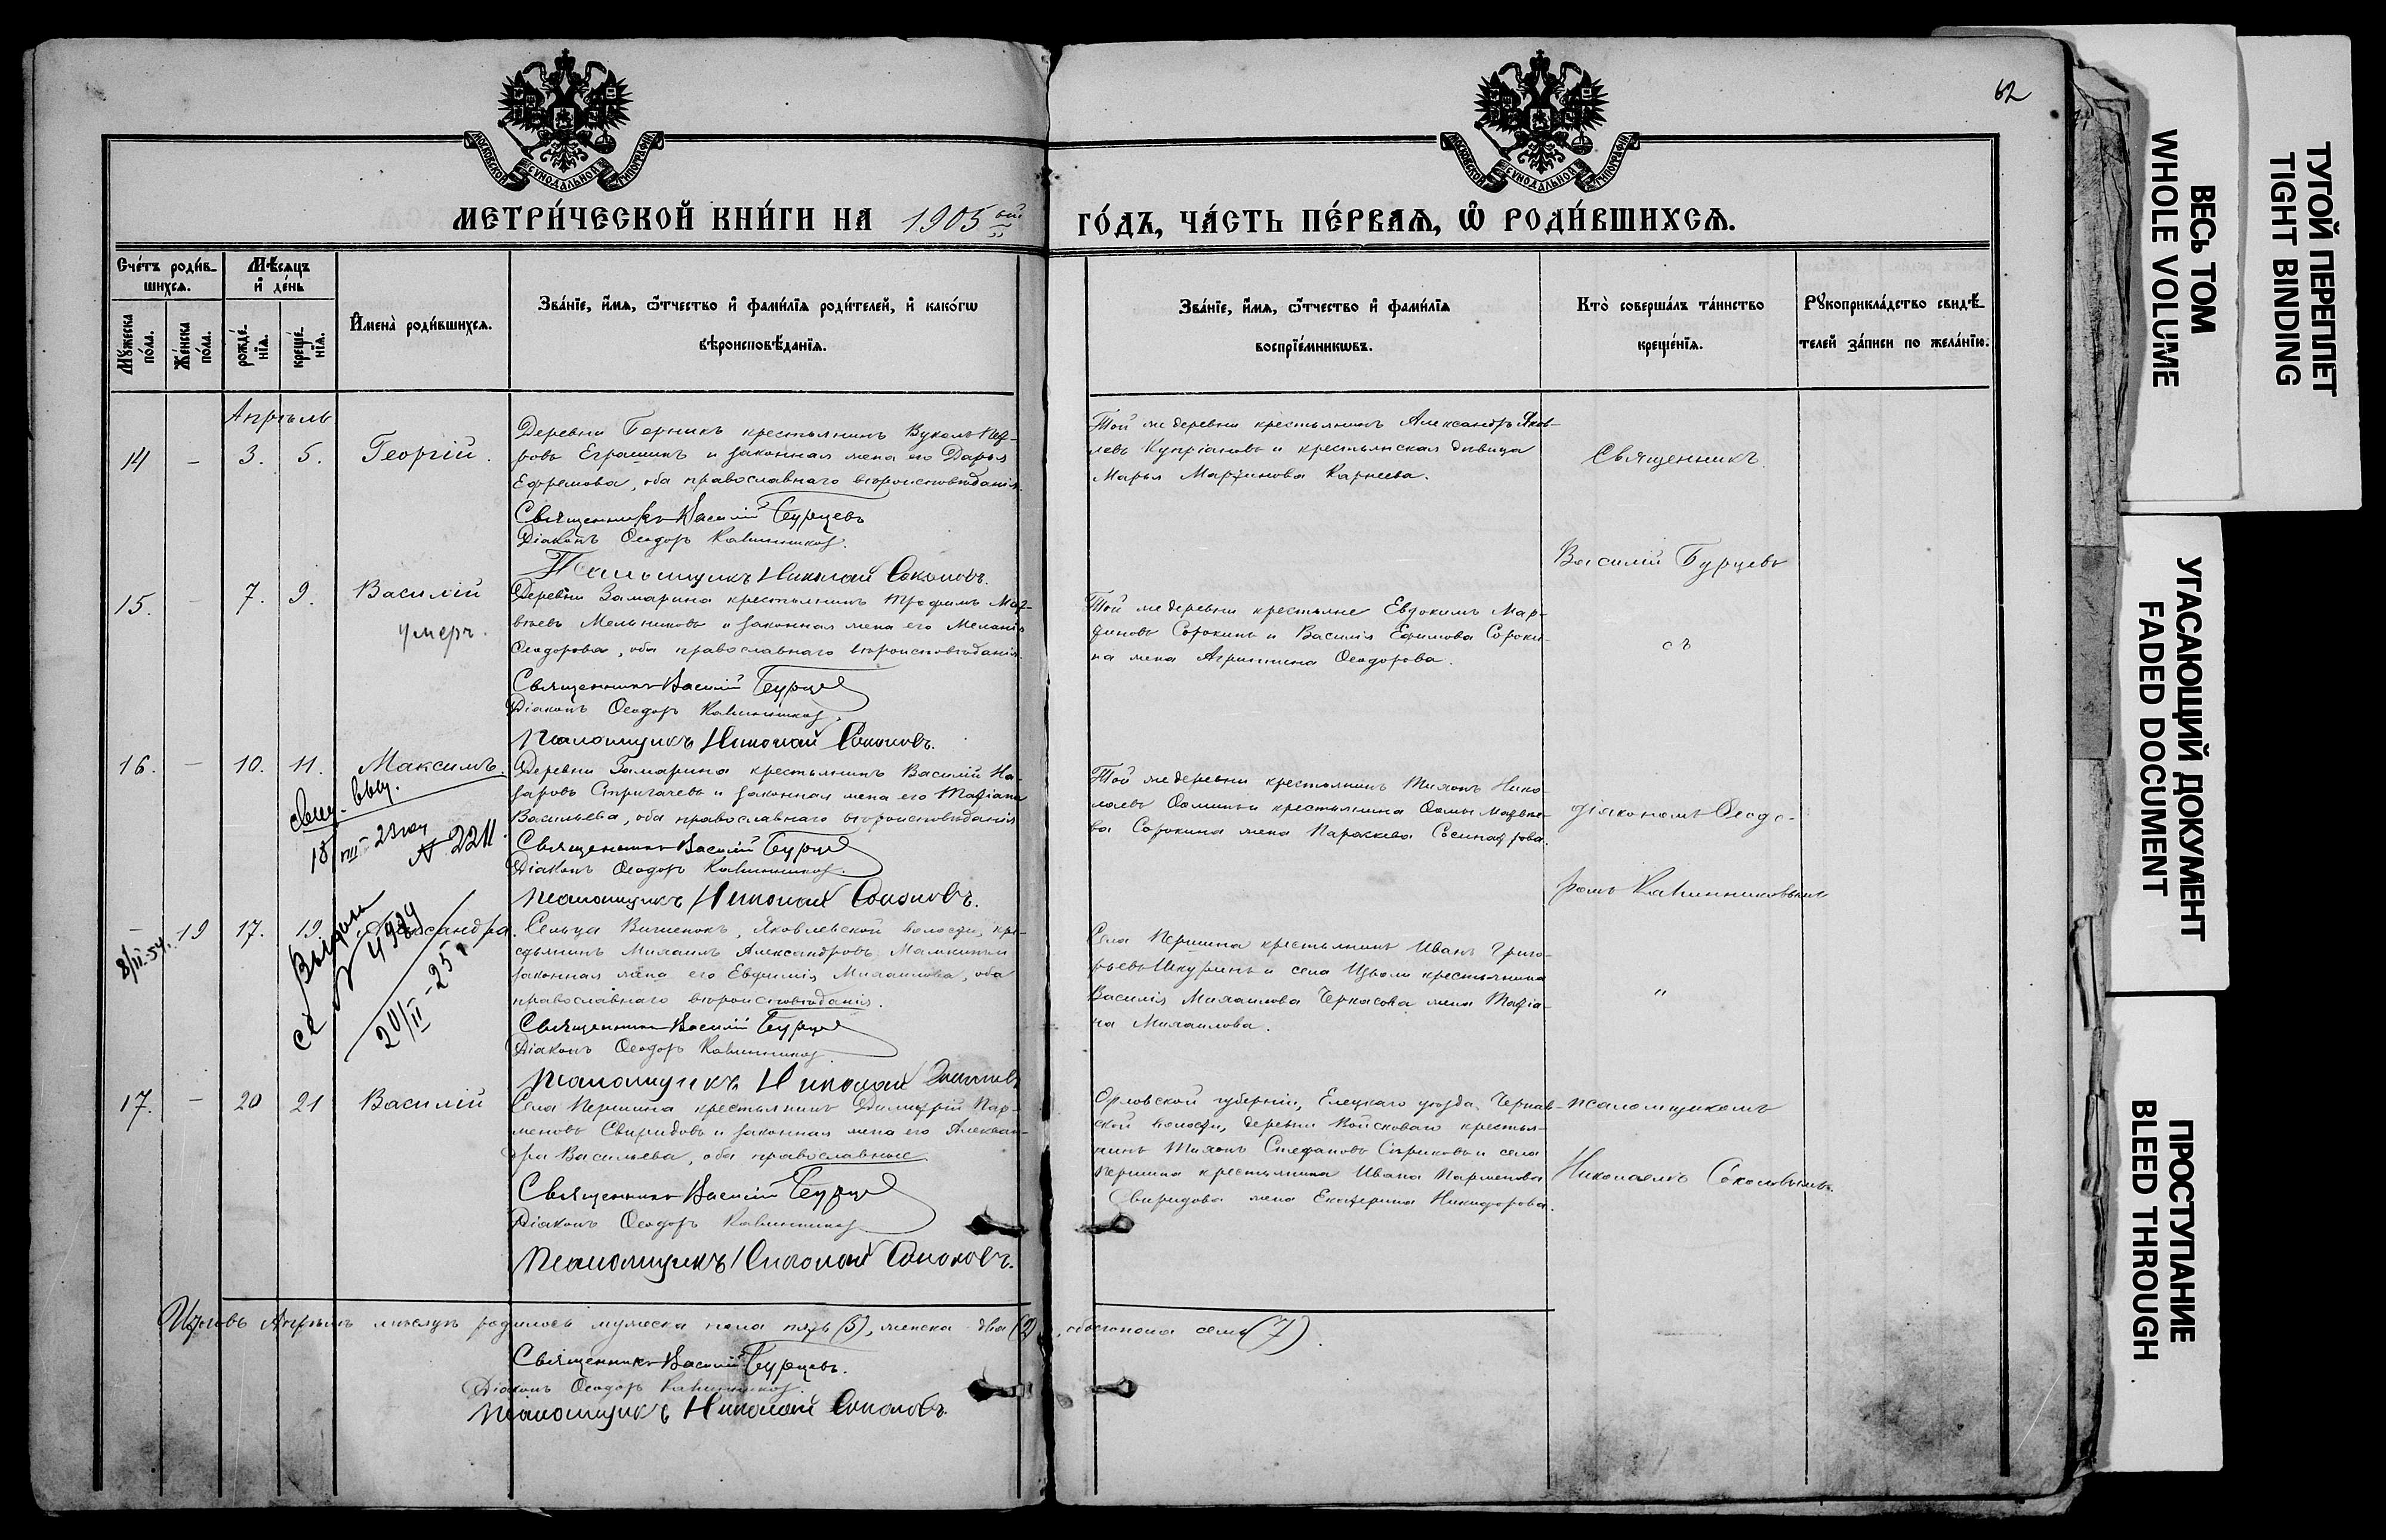 62
МОСКОВСКОЙ СѴНОДАЛЬНОЙ ТИПОГРАФІИ
МОСКОВСКОЙ СѴНОДАЛЬНОЙ ТИПОГРАФІИ
МЕТРИ́ЧЕСКОЙ КНИ́ГИ НА 1905 ый ГО́ДЪ, ЧА́СТЬ ПЕ́РВАѦ, Ѡ҆ РОДИ́ВШИХСѦ.
Сче́тъ роди́в-
шихсѧ.
Мꙋжеска по́ла.
Же́нска по́ла.
Мѣ́сѧцъ и҆ де́нь
рожде́-нїѧ.
креще́-нїѧ.
И҆мена̀ роди́вшихсѧ.
Зва́нїе, и҆́мѧ, ѻ҆́тчество и҆ фами́лїѧ роди́телей, и҆ како́гѡ
вѣроисповѣ́данїѧ.
Зва́нїе, и҆́мѧ, ѻ҆́тчество и҆ фами́лїѧ
воспрїе́мникѡвъ.
Кто̀ соверша́лъ та́инство
креще́нїѧ.
Рꙋкоприкла́дство свидѣ́-
телей за́писи по жела́нїю.
Апрѣль
14 – 3. 5. Георгій.
Деревни Берникъ крестьянинъ Вуколъ Пет-
ровъ Еграшинъ и законная жена его Дарья
Ефремова, оба православнаго вѣроисповѣданія.
Священникъ Василій Бурцевъ
Діаконъ Ѳеодоръ Калинников.
Псаломщикъ Николай Соколовъ.
Той же деревни крестьянинъ Александръ Яков-
левъ Купріановъ и крестьянская дѣвица
Марья Мартинова Карнеева.
Священникъ
Василій Бурцевъ
15. – 7. 9. Василій
умеръ.
Деревни Замарина крестьянинъ Трофимъ Мат-
вѣевъ Мельниковъ и законная жена его Меланія
Ѳеодорова, оба православнаго вѣроисповѣданія.
Священникъ Василій Бурцев
Діаконъ Ѳеодоръ Калинников.
Псаломщикъ Николай Соколовъ.
Той же деревни крестьяне Евдокимъ Мар-
тиновъ Сорокинъ и Василія Ефимова Сороки-
на жена Агриппина Ѳеодорова.
съ
16. – 10. 11. Максимъ.
выд.
№ 2211
Деревни Замарина крестьянинъ Василій На-
заровъ Стригачевъ и законная жена его Татіана
Васильева, оба православнаго вѣроисповѣданія
Священникъ Василій Бурцев
Діаконъ Ѳеодоръ Калинников.
Псаломщикъ Николай Соколовъ.
Той же деревни крестьянинъ Тихонъ Нико-
лаевъ Ѳоминъ и крестьянина Ѳомы Матвѣе-
ва Сорокина жена Параскева Сосипатрова.
діакономъ Ѳеодо-
ромъ Калинниковымъ
– 19 17. 19. Александра.
8/II-54.
20/II-25 г
Сельца Вишенокъ, Яковлевской волости, кре-
стьянинъ Михаилъ Александровъ Мамкинъ и
законная жена его Евдокія Михаилова, оба
православнаго вѣроисповѣданія.
Священникъ Василій Бурцев
Діаконъ Ѳеодоръ Калинников.
Псаломщикъ Николай Соколовъ
Села Першина крестьянинъ Иванъ Григо-
рьевъ Шкуринъ и села Изволи крестьянина
Василія Михаилова Черкасова жена Татіа-
на Михаилова.
"
17. – 20 21 Василій
Села Першина крестьянинъ Димитрій Пар-
меновъ Свиридовъ и законная жена его Алексан-
дра Васильева, оба православные
Священникъ Василій Бурцев
Діаконъ Ѳеодоръ Калинников
Псаломщикъ Николай Соколовъ.
Орловской губерніи, Елецкаго уѣзда, Чернав-
ской волости, деревни Войсковаго крестья-
нинъ Тихонъ Стефановъ Стриковъ и села
Першина крестьянина Ивана Парменова
Свиридова жена Екатерина Никифорова.
псаломщикомъ
Николаемъ Соколовымъ.
Итого въ Апрѣлѣ мѣсяцѣ родилось мужеска пола пять (5), женска два (2), обоего пола семь (7).
Священникъ Василій Бурцевъ.
Діаконъ Ѳеодоръ Калинников.
Псаломщикъ Николай Соколовъ
ВЕСЬ ТОМ
WHOLE VOLUME
ТУГОЙ ПЕРЕПЛЕТ
TIGHT BINDING
УГАСАЮЩИЙ ДОКУМЕНТ
FADED DOCUMENT
ПРОСТУПАНИЕ
BLEED THROUGH